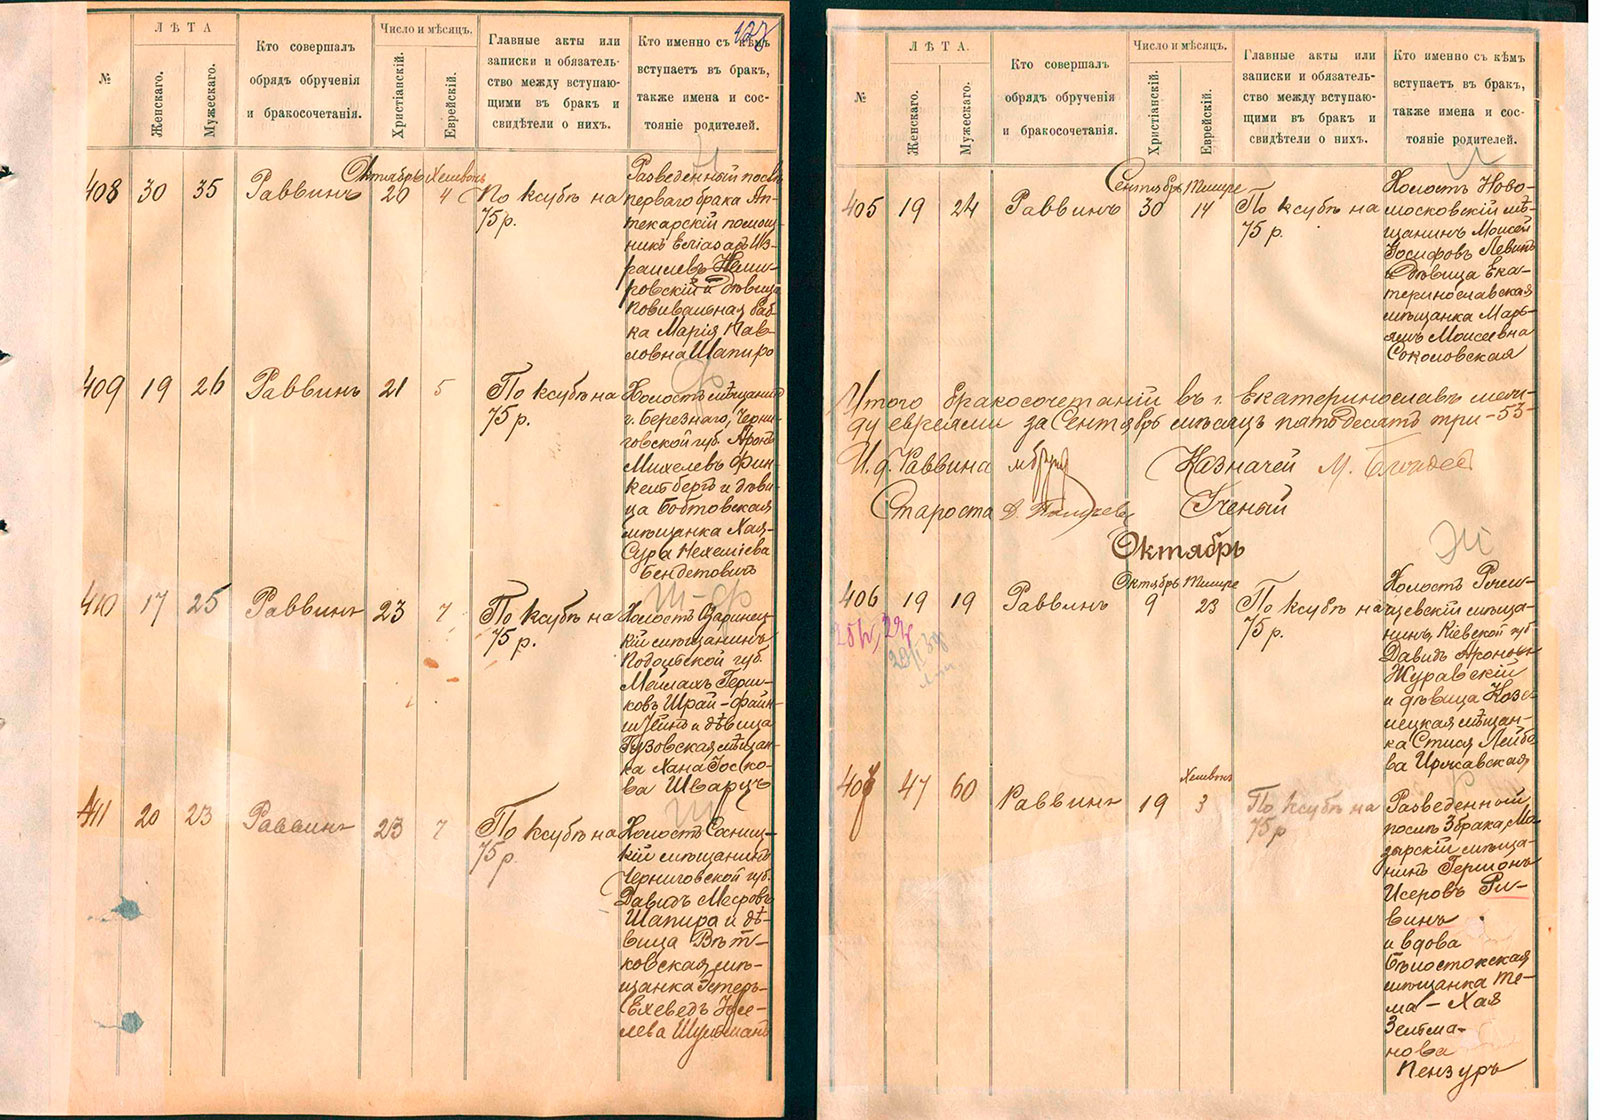 127
№
ЛѢТА
Женскаго.
Мужескаго.
Кто совершалъ
обрядъ обрученія
и бракосочетанія.
Число и мѣсяцъ.
Христіанскій.
Еврейскій.
Главные акты или
записки и обязатель-
ство между вступаю-
щими въ бракъ и
свидѣтели о нихъ.
Кто именно съ кѣмъ
вступаетъ въ бракъ,
также имена и сос-
тояніе родителей.
408 30 35 Раввинъ
Октябрь Хешвонъ
20 4
По ксубѣ на
75 р.
Разведенный послѣ
перваго брака Ап-
текарскій помощ-
никъ
раилевъ Неми-
ровскій и дѣвица
Повивальная баб-
ка Марія Пав-
ловна Шапиро
409 19 26 Раввинъ 21 5
По ксубѣ на
75 р.
Холостъ мѣщанинъ
г. Березнаго, Черни-
говской губ. Аронъ
Михелевъ Фин-
кельбергъ и дѣви-
ца
мѣщанка Хая-
Сура Нехеміева
Бендетовичъ
410 17 25 Раввинъ 23 7
По ксубѣ на
75 р.
Холостъ
кій мѣщанинъ
Подольской губ.
Мейлахъ Герш-
ковъ Шрай-Файн-
штейнъ и дѣвица
мѣщан-
ка Хана Іоско-
ва Шварцъ
411 20 23 Раввинъ 23 7
По ксубѣ на
75 р.
Холостъ Сосниц-
кій мѣщанинъ
Черниговской губ.
Давидъ Мееровъ
Шапиро и дѣ-
вица Вѣт-
ковская мѣ-
щанка Эстеръ-
Ехеведъ
лева Шульманъ
№
ЛѢТА.
Женскаго.
Мужескаго.
Кто совершалъ
обрядъ обрученія
и бракосочетанія.
Число и мѣсяцъ.
Христіанскій.
Еврейскій.
Главные акты или
записки и обязатель-
ство между вступаю-
щими въ бракъ и
свидѣтели о нихъ.
Кто именно съ кѣмъ
вступаетъ въ бракъ,
также имена и сос-
тояніе родителей.
405 19 24 Раввинъ
Сентябрь Тишре
30 14
По ксубѣ на
75 р.
Холостъ Ново-
московскій мѣ-
щанинъ Моисей
Іосифовъ Левинъ
и дѣвица Ека-
теринославская
мѣщанка Марь-
ясъ Моисеевна
Соколовская
Итого бракосочетаній въ г. Екатеринославѣ меж-
ду евреями за Сентябрь мѣсяцъ пятьдесятъ три - 53 -
И. д. Раввина
Казначей М.
Староста Д.
Ученый
Октябрь
406 19 19 Раввинъ
Октябрь Тишре
9 23
По ксубѣ на
75 р.
Холостъ Ржи-
щевскій мѣща-
нинъ, Кіевской губ
Давидъ Ароновъ
Журавскій
и дѣвица Козе-
лецкая мѣщан-
ка Стися Лейбо-
ва Иржавская
407 47 60 Раввинъ 19
Хешвонъ
3
По ксубѣ на
75 р
Разведенный
послѣ 3 брака Мо-
зырскій мѣща-
нинъ Гершонъ
Исеровъ Ри-
винъ
и вдова
Бѣлостокская
мѣщанка Те-
ма-Хая
Зельма-
нова
Пензуръ